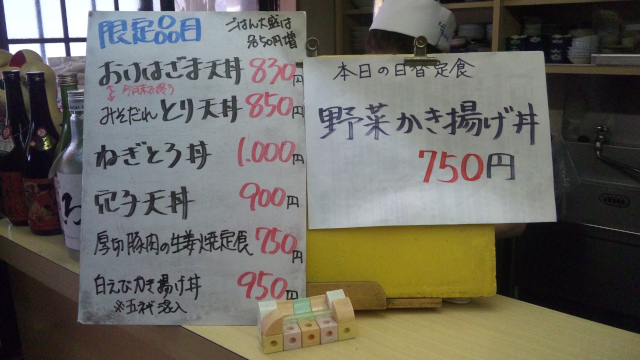 限定品目
ごはん大盛は
各50円増
おけはざま天丼 830円
みそだれとり天丼 850円
ねぎとろ丼 1.000円
穴子天丼 900円
厚切豚肉の生姜焼定食 750円
白えびかき揚げ丼 950円
本日の日替定食
野菜かき揚げ丼
750円